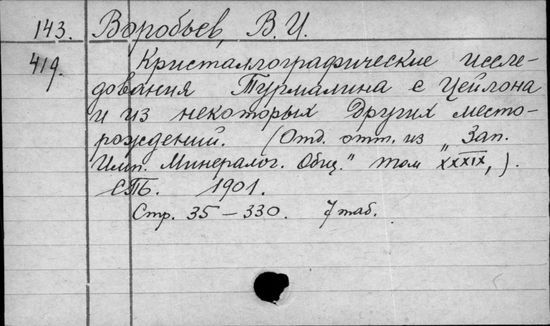 143. Воробьев, В. И.
419. Кристаллографические иссле-
дования Турмалина с Цейлона
и из некоторых других место-
рождений. (Отд. отт. из „Зап.
Имп. Минералог. Общ." том XXXIX,).
СПБ. 1901.
Стр. 35–330. 7 таб.